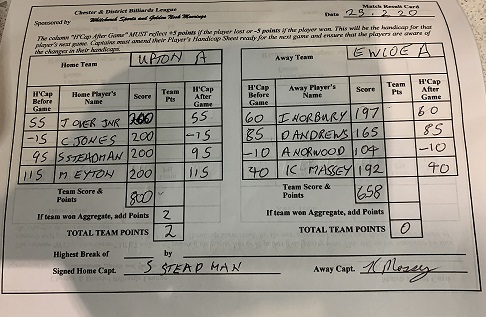 Chester & District Billiards League
Match Result Card
Sponsored by Whitehound Sports and Golden Nook Mornings
Date 29 2 20
The column "H'Cap After Game" MUST reflect +5 points if the player lost or -5 points if the player won. This will be the handicap for
player's next game. Captains must amend their Player's Handicap Sheet ready for the next game and ensure that the players are aware of
the changes in their handicaps.
Home Team UPTON A
Away Team EWLOE A
H'Cap Before Game Home Player's Name Score Team Pts H'Cap After Game
55 J OVER JNR 200 55
-15 C JONES 200 -15
95 S STEADMAN 200 95
115 M EYTON 200 115
Team Score & Points 800
If team won Aggregate, add Points 2
TOTAL TEAM POINTS 2
H'Cap Before Game Away Player's Name Score Team Pts H'Cap After Game
60 I NORBURY 197 60
85 D ANDREWS 165 85
-10 A NORWOOD 104 -10
40 K MASSEY 192 40
Team Score & Points 658
If team won Aggregate, add Points
TOTAL TEAM POINTS 0
Highest Break of by
Signed Home Capt. S STEADMAN
Away Capt. K Massey